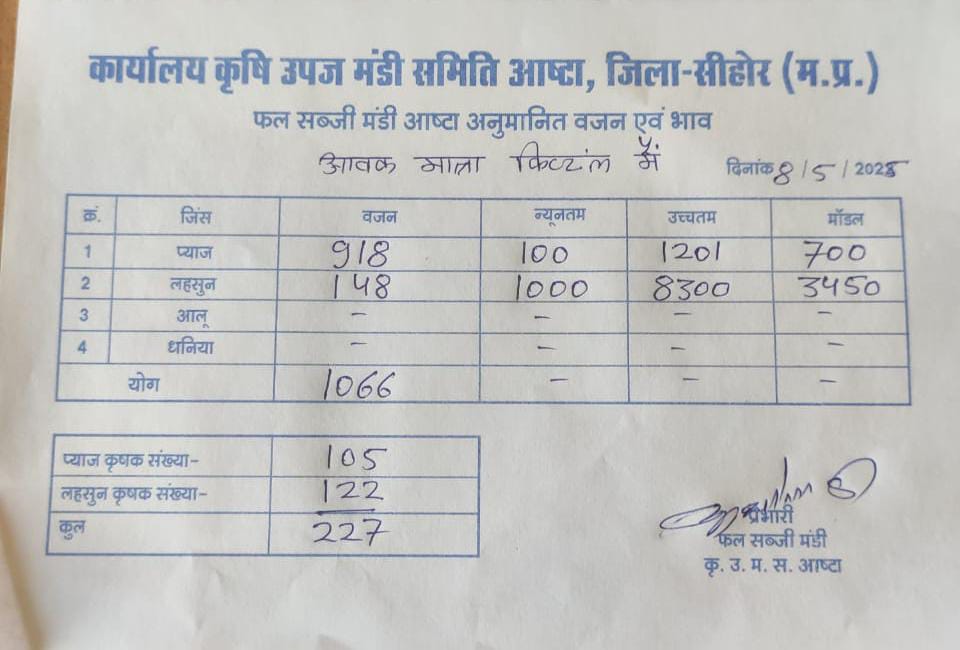 कार्यालय कृषि उपज मंडी समिति आष्टा, जिला-सीहोर (म.प्र.)
फल सब्जी मंडी आष्टा अनुमानित वजन एवं भाव
आवक मात्रा क्विटंल में दिनांक 8/5/2025
क्रं. जिंस वजन न्यूनतम उच्चतम मॉडल
1 प्याज 918 100 1201 700
2 लहसुन 148 1000 8300 3450
3 आलू - - - -
4 धनिया - - - -
योग 1066 - - -
प्याज कृषक संख्या- 105
लहसुन कृषक संख्या- 122
कुल 227
प्रभारी
फल सब्जी मंडी
कृ. उ. म. स. आष्टा